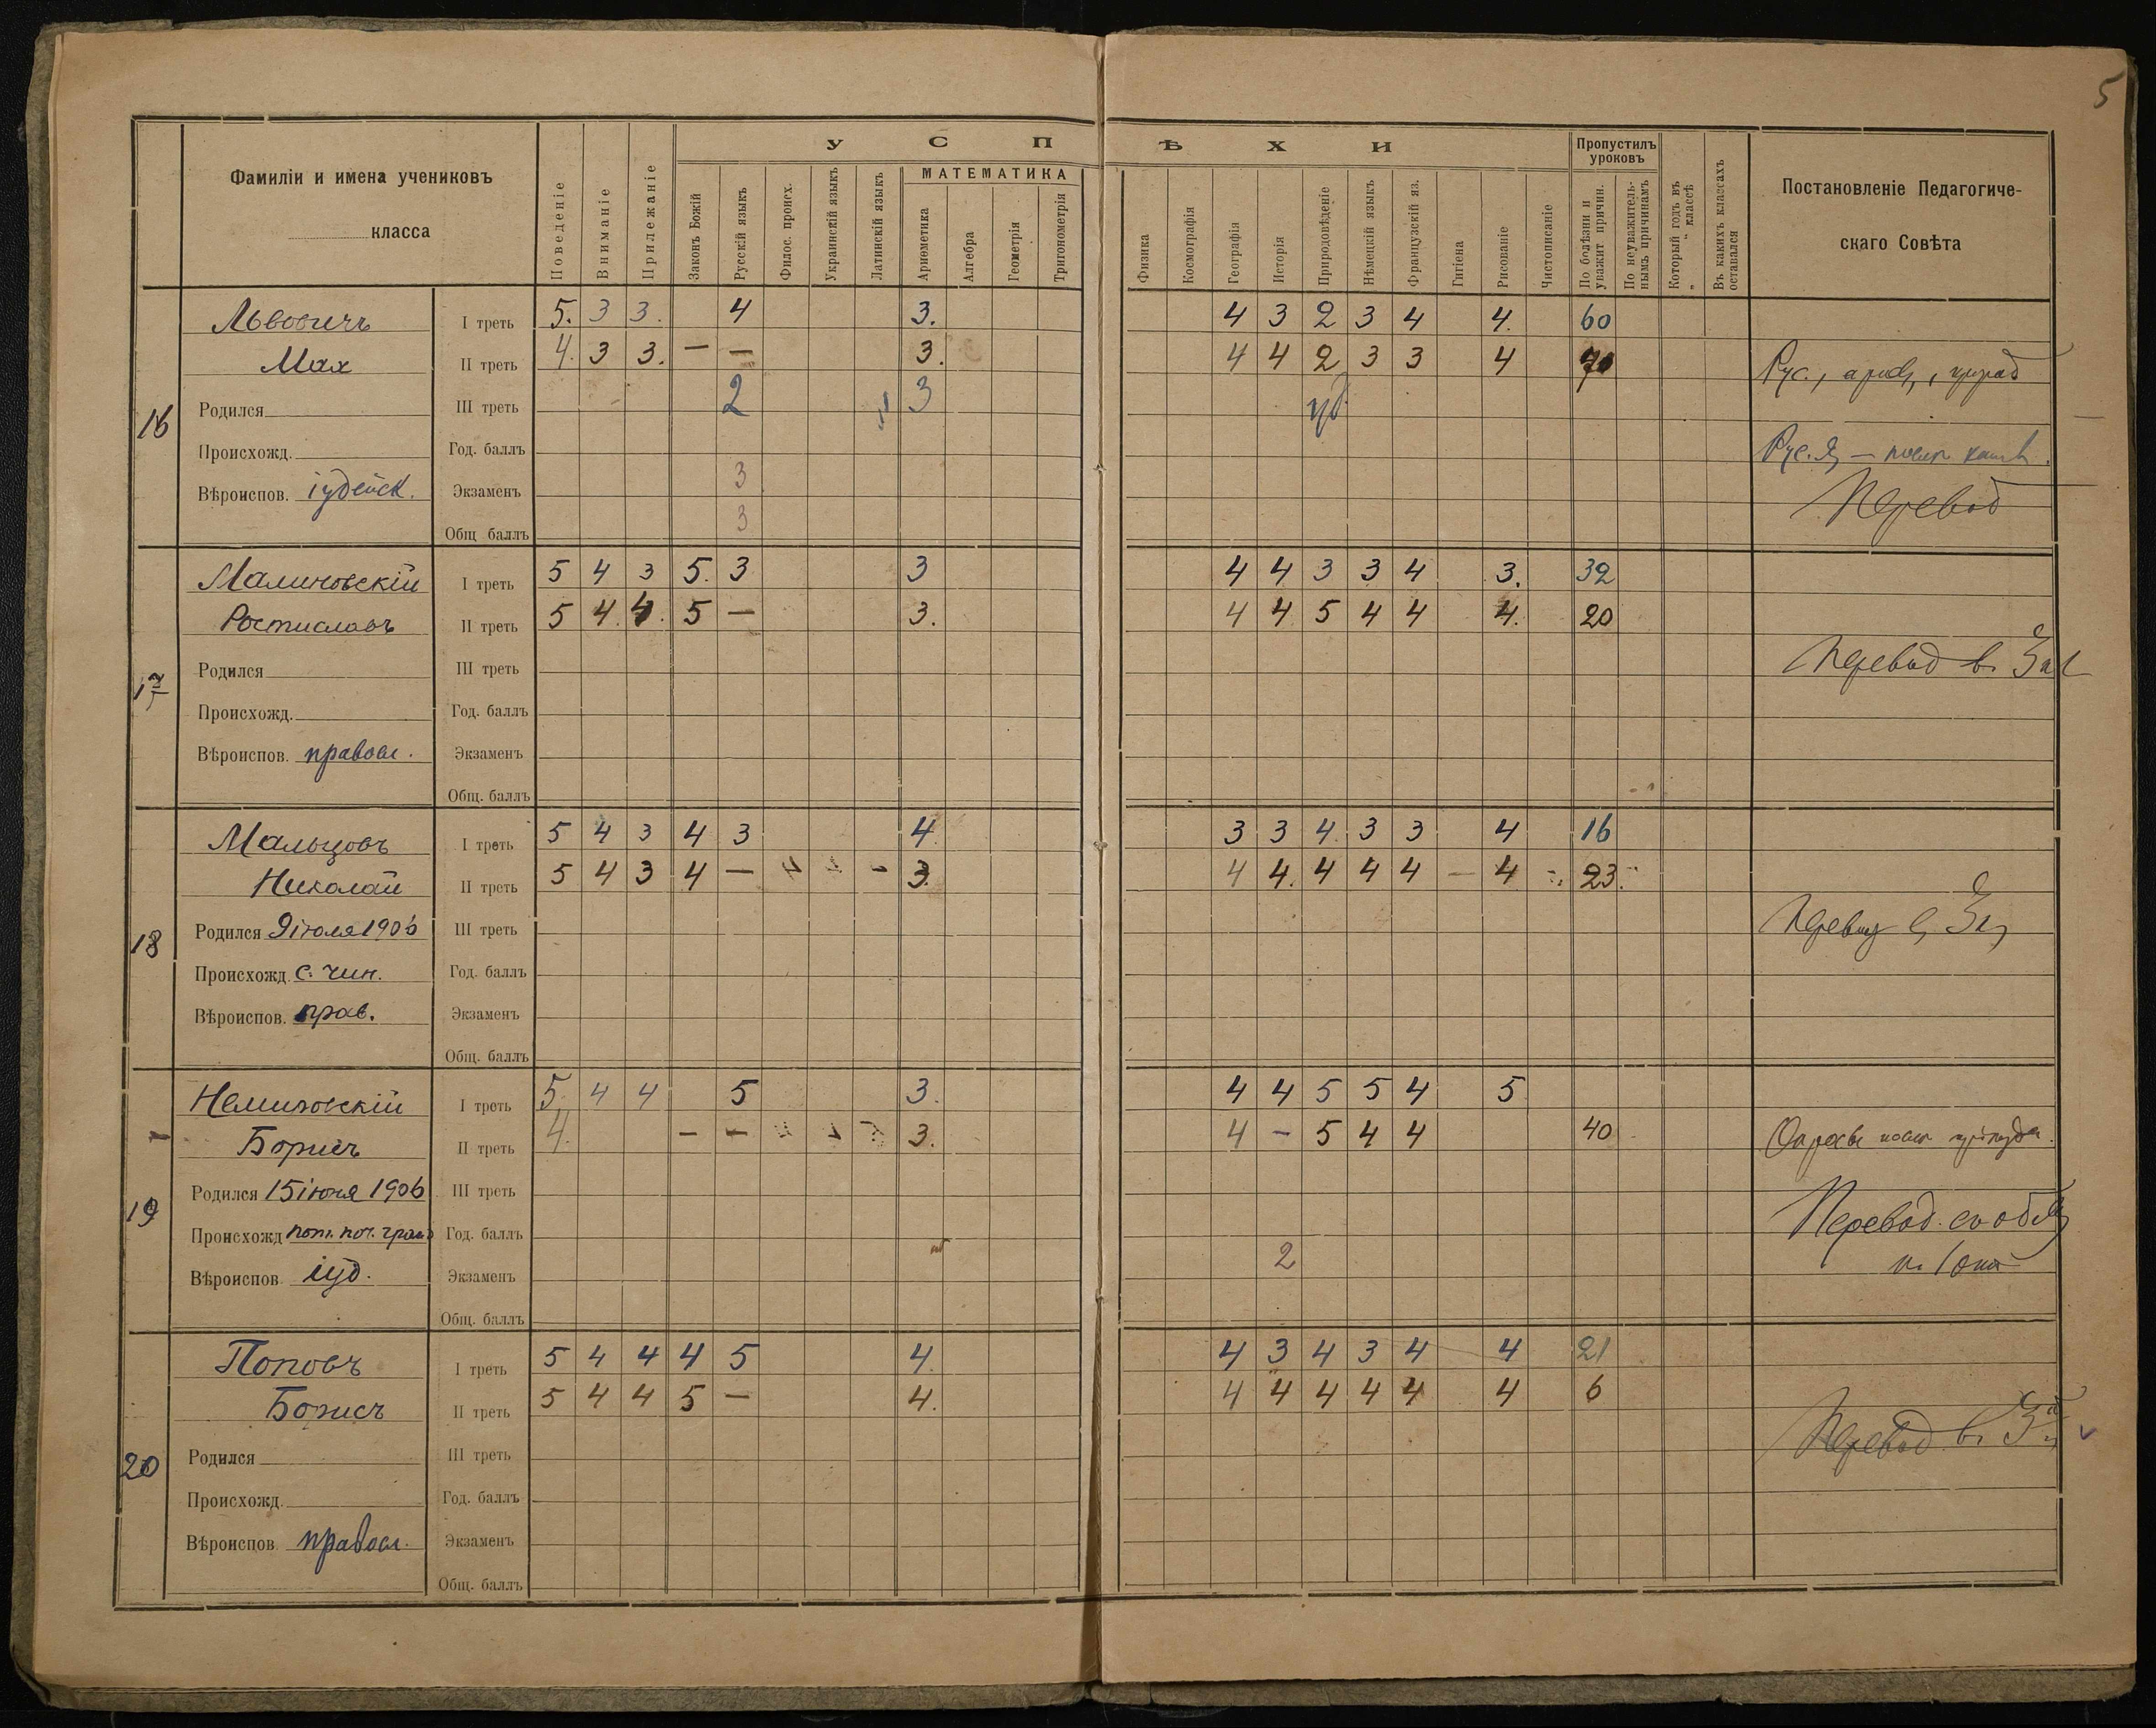 5
У С П Ѣ Х И
Фамиліи и имена учениковъ
класса
Поведеніе
Вниманіе
Прилежаніе
Законъ Божій
Русскій языкъ
Филос. происх.
Украинскій языкъ
Латинскій языкъ
МАТЕМАТИКА
Ариѳметика
Алгебра
Геометрія
Тригонометрія
Физика
Космографія
Географія
Исторія
Природовѣдѣніе
Нѣмецкій языкъ
Французскій яз.
Гигіена
Рисованіе
Чистописаніе
Пропустилъ уроковъ
По болѣзни и уважит причин.
По неуважитель-нымъ причинамъ
Который годъ въ „ “ классѣ
Въ какихъ классахъ оставался
Постановленіе Педагогиче-
скаго Совѣта
16
Львовичъ I треть 5. 3 3. 4 3. 4 3 2 3 4 4. 60
Мах II треть 4. 3 3. — — 3. 4 4 2 3 3 4
Родился III треть 2 3 уд.
Происхожд. Год. баллъ
Вѣроиспов. іудейск. Экзаменъ 3
Общ баллъ 3
Перевод
17
Малиновскій I треть 5 4 3 5. 3 3 4 4 3 3 4 3. 32
Ростиславъ II треть 5 4. 4. 5 — 3. 4 4 5 4 4 4. 20
Родился III треть Перевод в
Происхожд. Год. баллъ
Вѣроиспов. правосл. Экзаменъ
Общ. баллъ
18
Мальцовъ I треть 5 4 3 4 3 4. 3 3 4. 3 3 4 16
Николай II треть 5 4 3 4 — 3. 4 4. 4 4 4 — 4 23.
Родился 9 іюля 1906 III треть
Происхожд. с. чин. Год. баллъ
Вѣроиспов. прав. Экзаменъ
Общ. баллъ
19
Немировскій I треть 5. 4 4 5 3. 4 4 5 5 4 5
Борисъ II треть 4. — — 3. 4 - 5 4 4 40
Родился 15 іюня 1906 III треть
Происхожд пот. поч. граж Год. баллъ Перевод.
Вѣроиспов іуд. Экзаменъ 2
Общ. баллъ
20
Поповъ I треть 5 4 4 4 5 4. 4 3 4 3 4 4 21
Борисъ II треть 5 4 4 5 — 4. 4 4 4 4 4 4 6
Родился III треть Перевод в
Происхожд. Год. баллъ
Вѣроиспов. правосл. Экзаменъ
Общ. баллъ